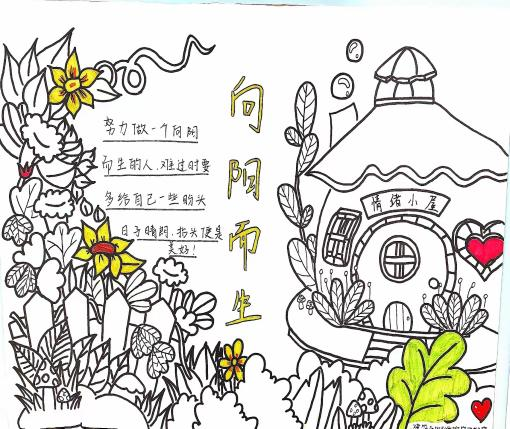 向阳而生
努力做一个向阳
而生的人,难过时要
多给自己一些盼头
日子晴朗,抬头便是
美好!
情绪小屋